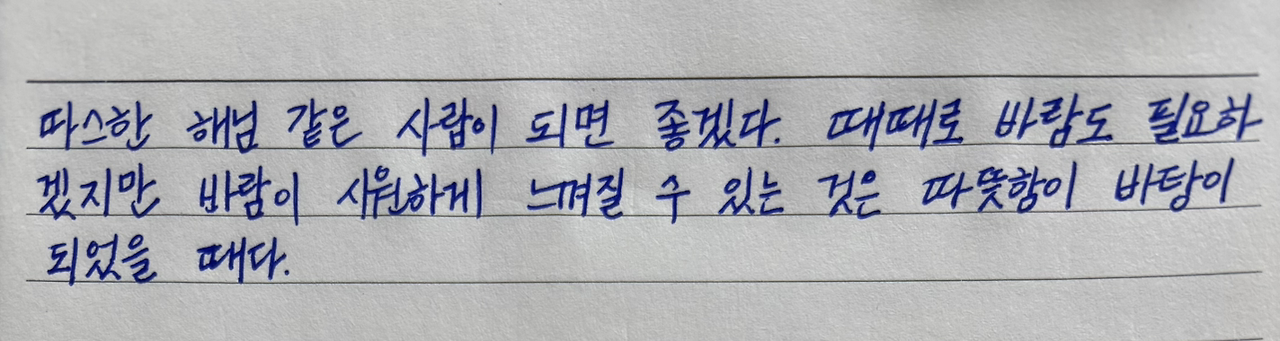 따스한 해님 같은 사람이 되면 좋겠다. 때때로 바람도 필요하
겠지만 바람이 시원하게 느껴질 수 있는 것은 따뜻함이 바탕이
되었을 때다.